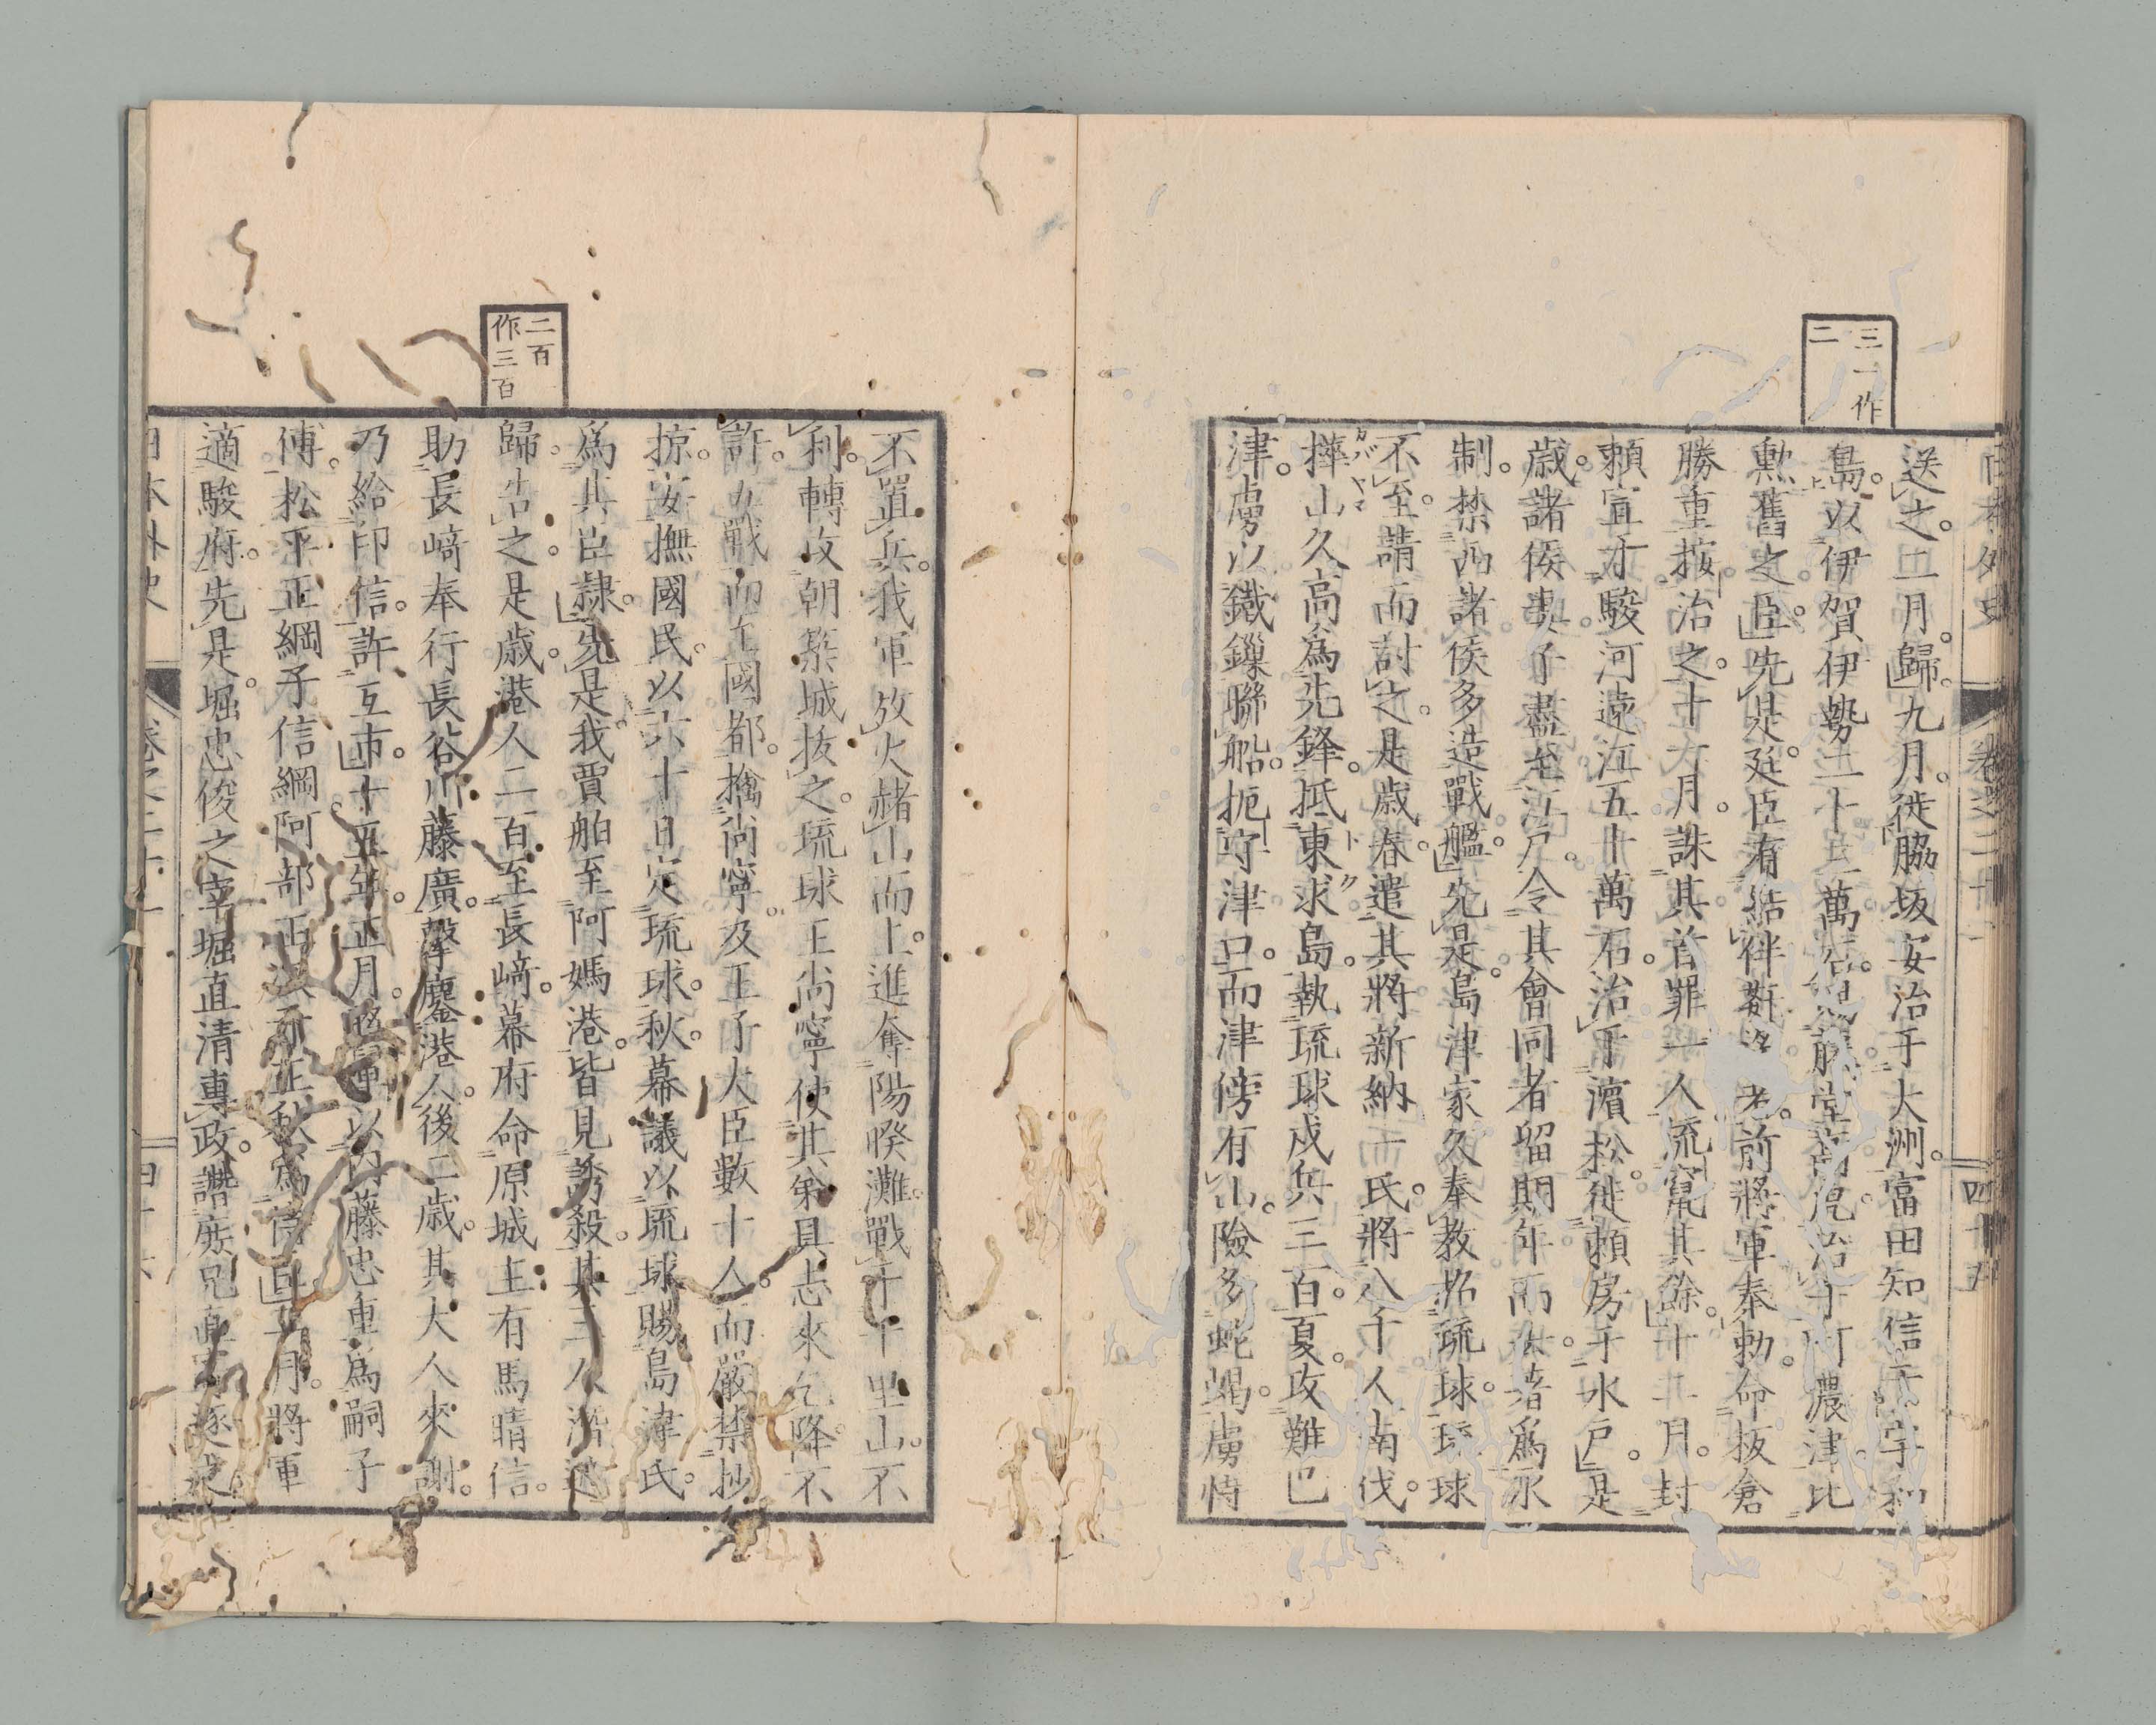 三一作
二
日本外史 卷之二十一 四十五
送之。二月。歸。九月。徙脇坂安治于大洲。富田知信于宇和
島。以伊賀伊勢二十三萬石。封藤堂高虎。治于阿濃津。比
勳舊之臣。先是。廷臣有結伴。前將軍奉勅。命板倉
勝重按治之。十月。誅其首罪一人。流竄其餘。十二月。封
賴宣于駿河遠江五十萬石。治于濱松。徙賴房于水戶。是
歲。諸侯妻子盡至江戶。令其會同者。留期年而休。著爲永
制。禁西諸侯多造戰艦。先是。島津家久奉教招琉球。琉球
不至。請而討之。是歲春。遣其將新納一氏。將八千人南伐。
樺山久高爲先鋒。抵東求島。執琉球戍兵三百。夏。攻難巴
津。虜以鐵鏁聯船。扼守津口。而津傍有山。險多蛇蝎。虜恃
二百
作三百
不置兵。我軍放火赭山而上。進奪陽暌灘。戰于千里山。不
利。轉攻朝築城。拔之。琉球王尚寧使其弟具志來乞降。不
許。五戰而至國都。擒尚寧。及王子大臣數十人。而嚴禁抄
掠。安撫國民。以六十日定琉球。秋。幕議以琉球賜島津氏。
爲其臣隸。先是。我賈舶至阿媽港。皆見誘殺。其二人潛逃
歸。告之。是歲。港人二百至長崎。幕府命原城主有馬晴信。
助長崎奉行長谷川藤廣。擊鏖港人。後二歲。其大人來謝。
乃給印信。許互市。十五年。正月。將軍以內藤忠重爲嗣子
傅。松平正綱子信綱阿部正秋爲侍臣。二月。將軍
適駿府。先是。堀忠俊之宰堀直清專政。譖庶兄直寄逐之。
日本外史 卷之二十一 四十六